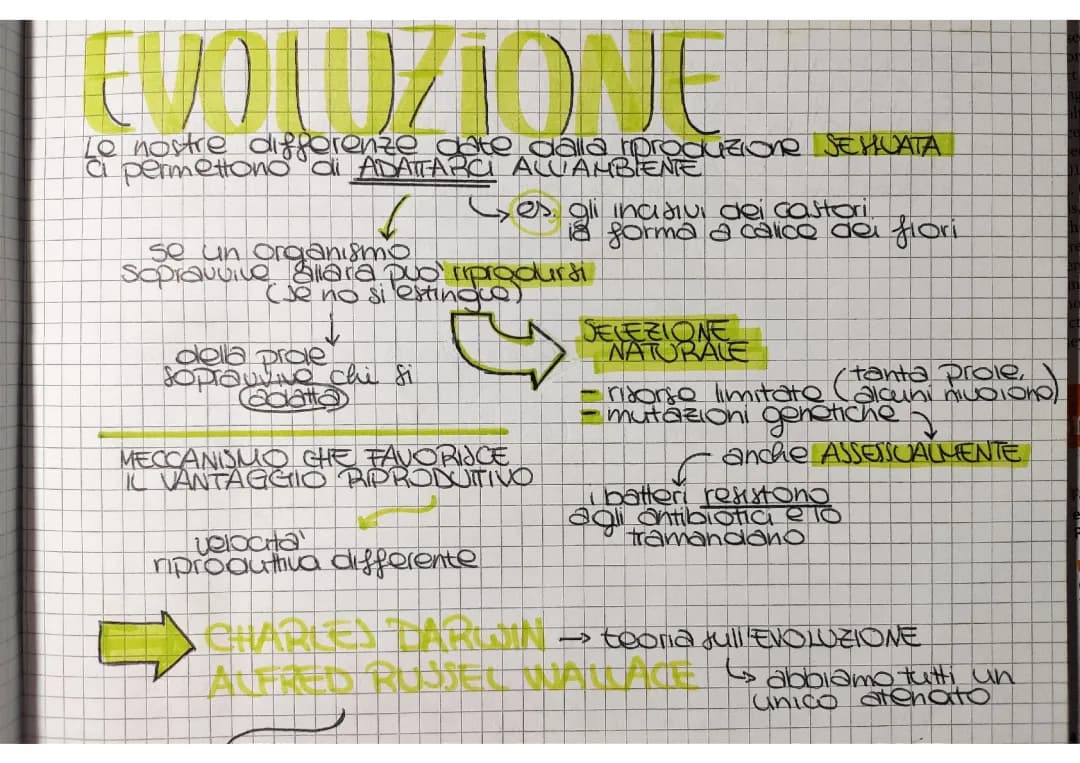 EVOLUZIONE
Le nostre differenze date dalla riproduzione SESSUATA
ci permettono di ADATTARCI ALL'AMBIENTE
es. gli incisivi dei castori
la forma a calice dei fiori
se un organismo
sopravvive allora può riprodursi
(se no si estingue)
della prole
sopravvive chi si
adatta
SELEZIONE
NATURALE
= risorse limitate (tanta prole,
alcuni muoiono)
= mutazioni genetiche
anche ASSESSUALMENTE
i batteri resistono
agli antibiotici e lo
tramandano
MECCANISMO CHE FAVORISCE
IL VANTAGGIO RIPRODUTTIVO
velocità
riproduttiva differente
CHARLES DARWIN → teoria sull'EVOLUZIONE
ALFRED RUSSEL WALLACE
abbiamo tutti un
unico atenato